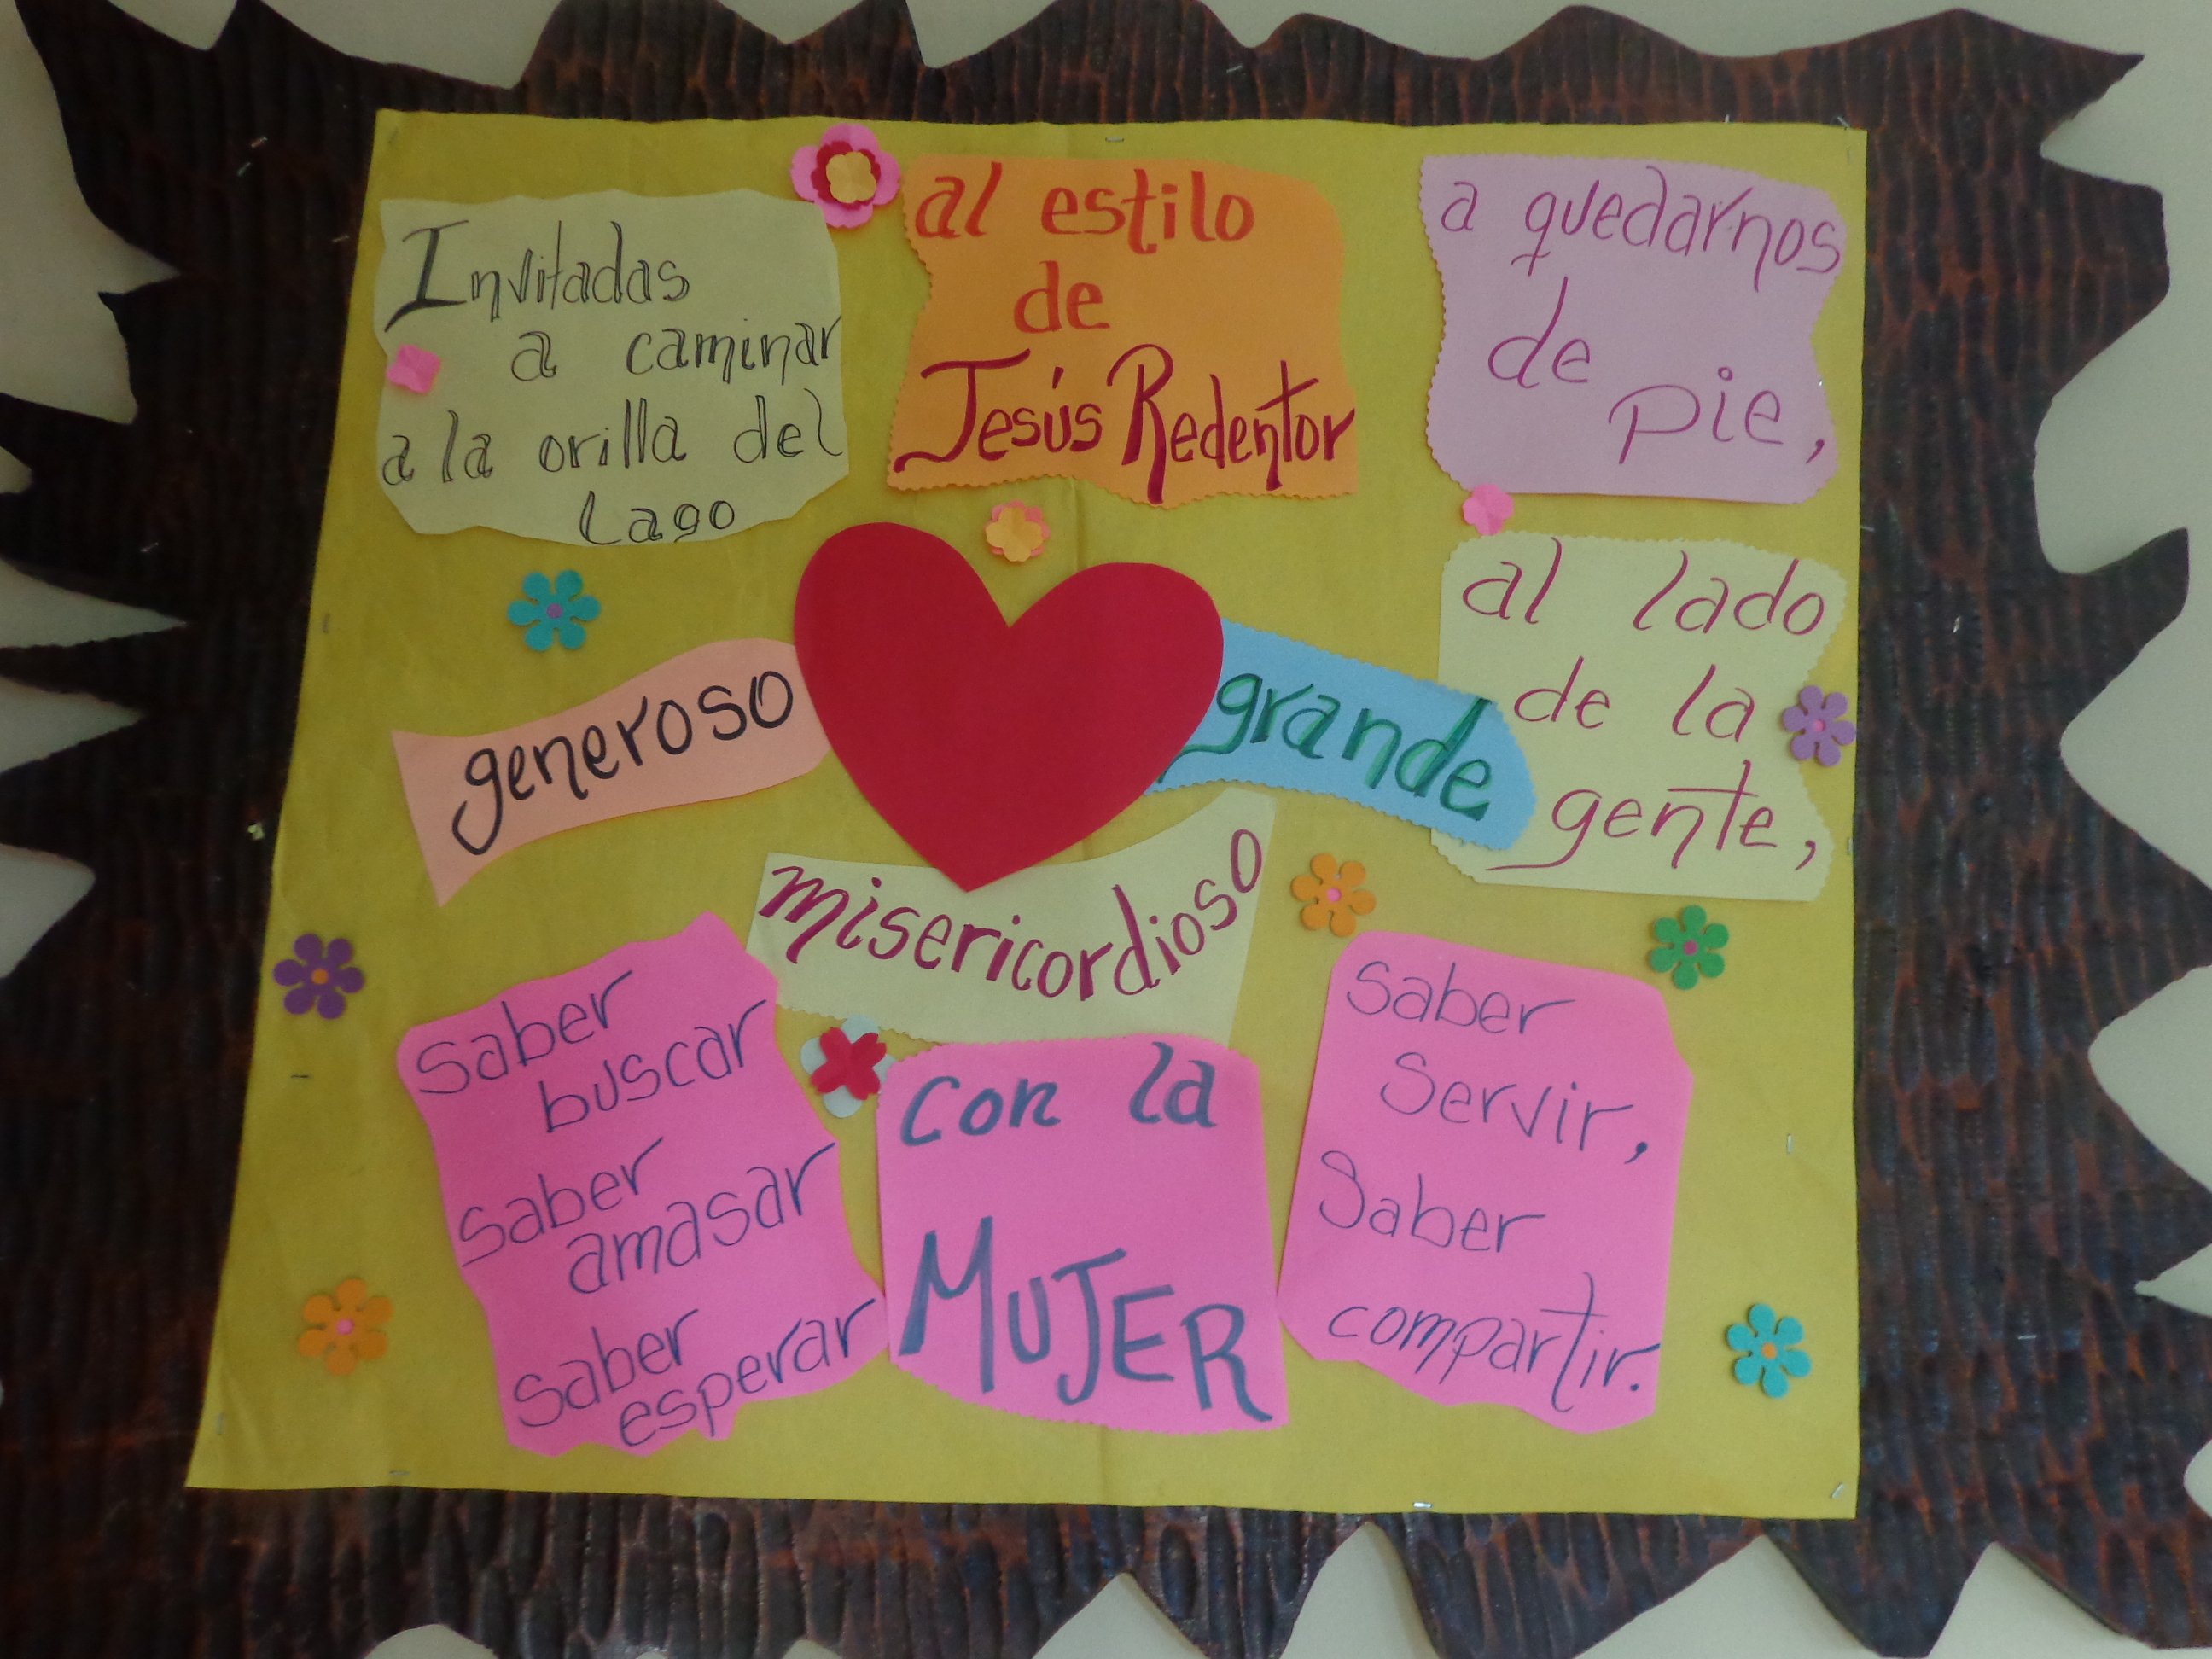 Invitadas
a caminar
a la orilla del
Lago
al estilo
de
Jesús Redentor
a quedarnos
de
pie,
al lado
de la
gente,
generoso
grande
misericordioso
Saber
buscar
Saber
amasar
Saber
esperar
con la
MUJER
Saber
Servir,
Saber
compartir.